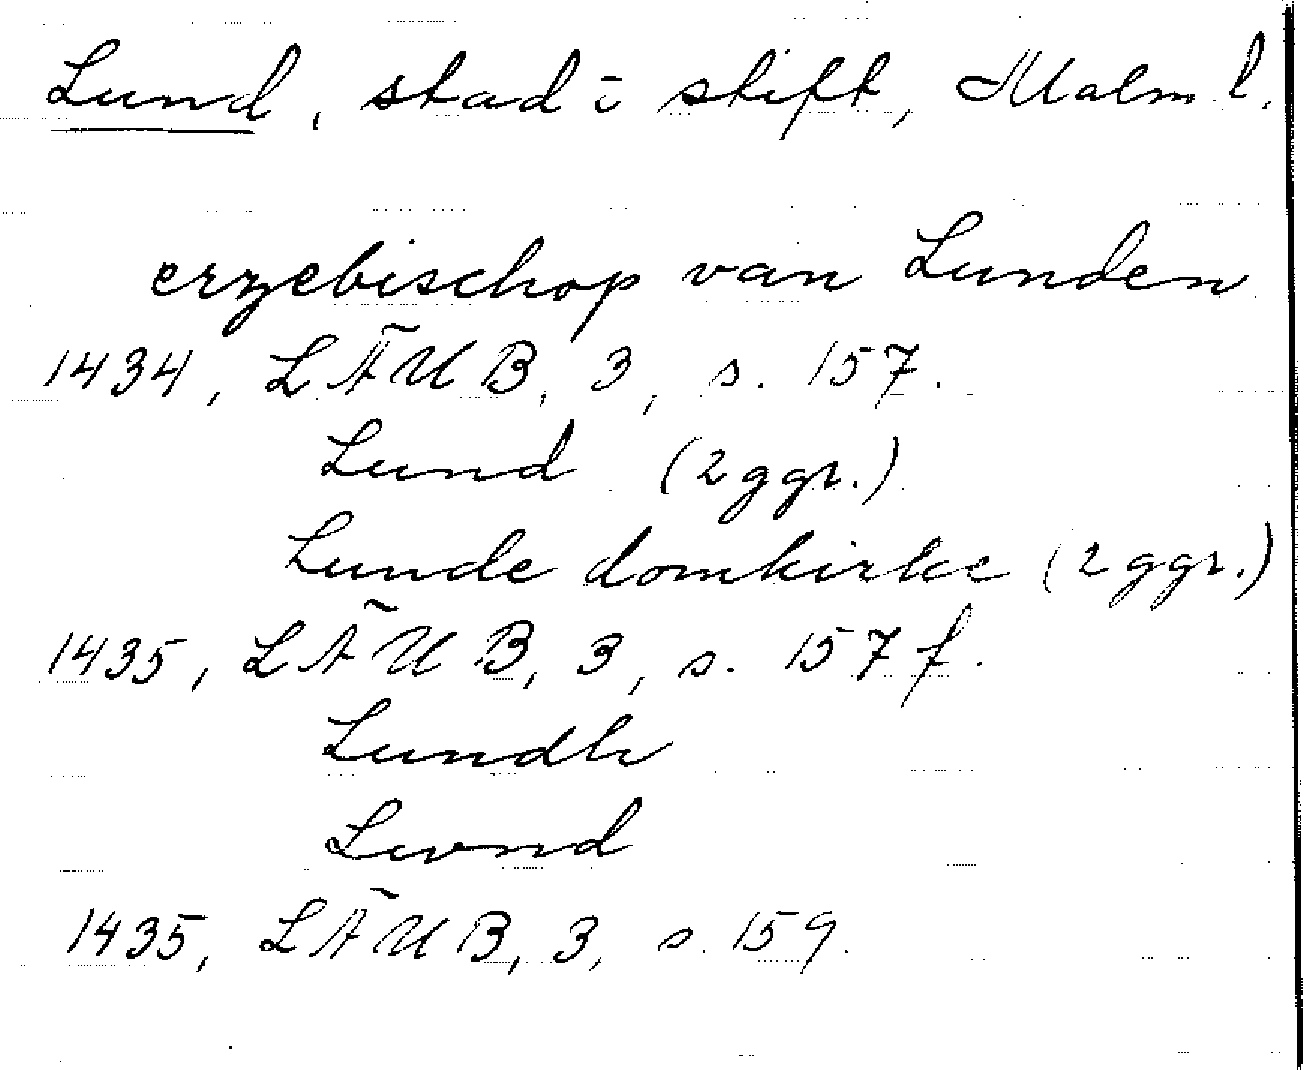 Lund, stad i stift, Malm l.
erzebischop van Lunden
1434, LÄUB, 3, s. 157.
Lund (2 ggr.)
Lunde domkirke (2 ggr.)
1435, LÄUB, 3, s. 157 f.
Lundh
Lwnd
1435, LÄUB, 3, s. 159.